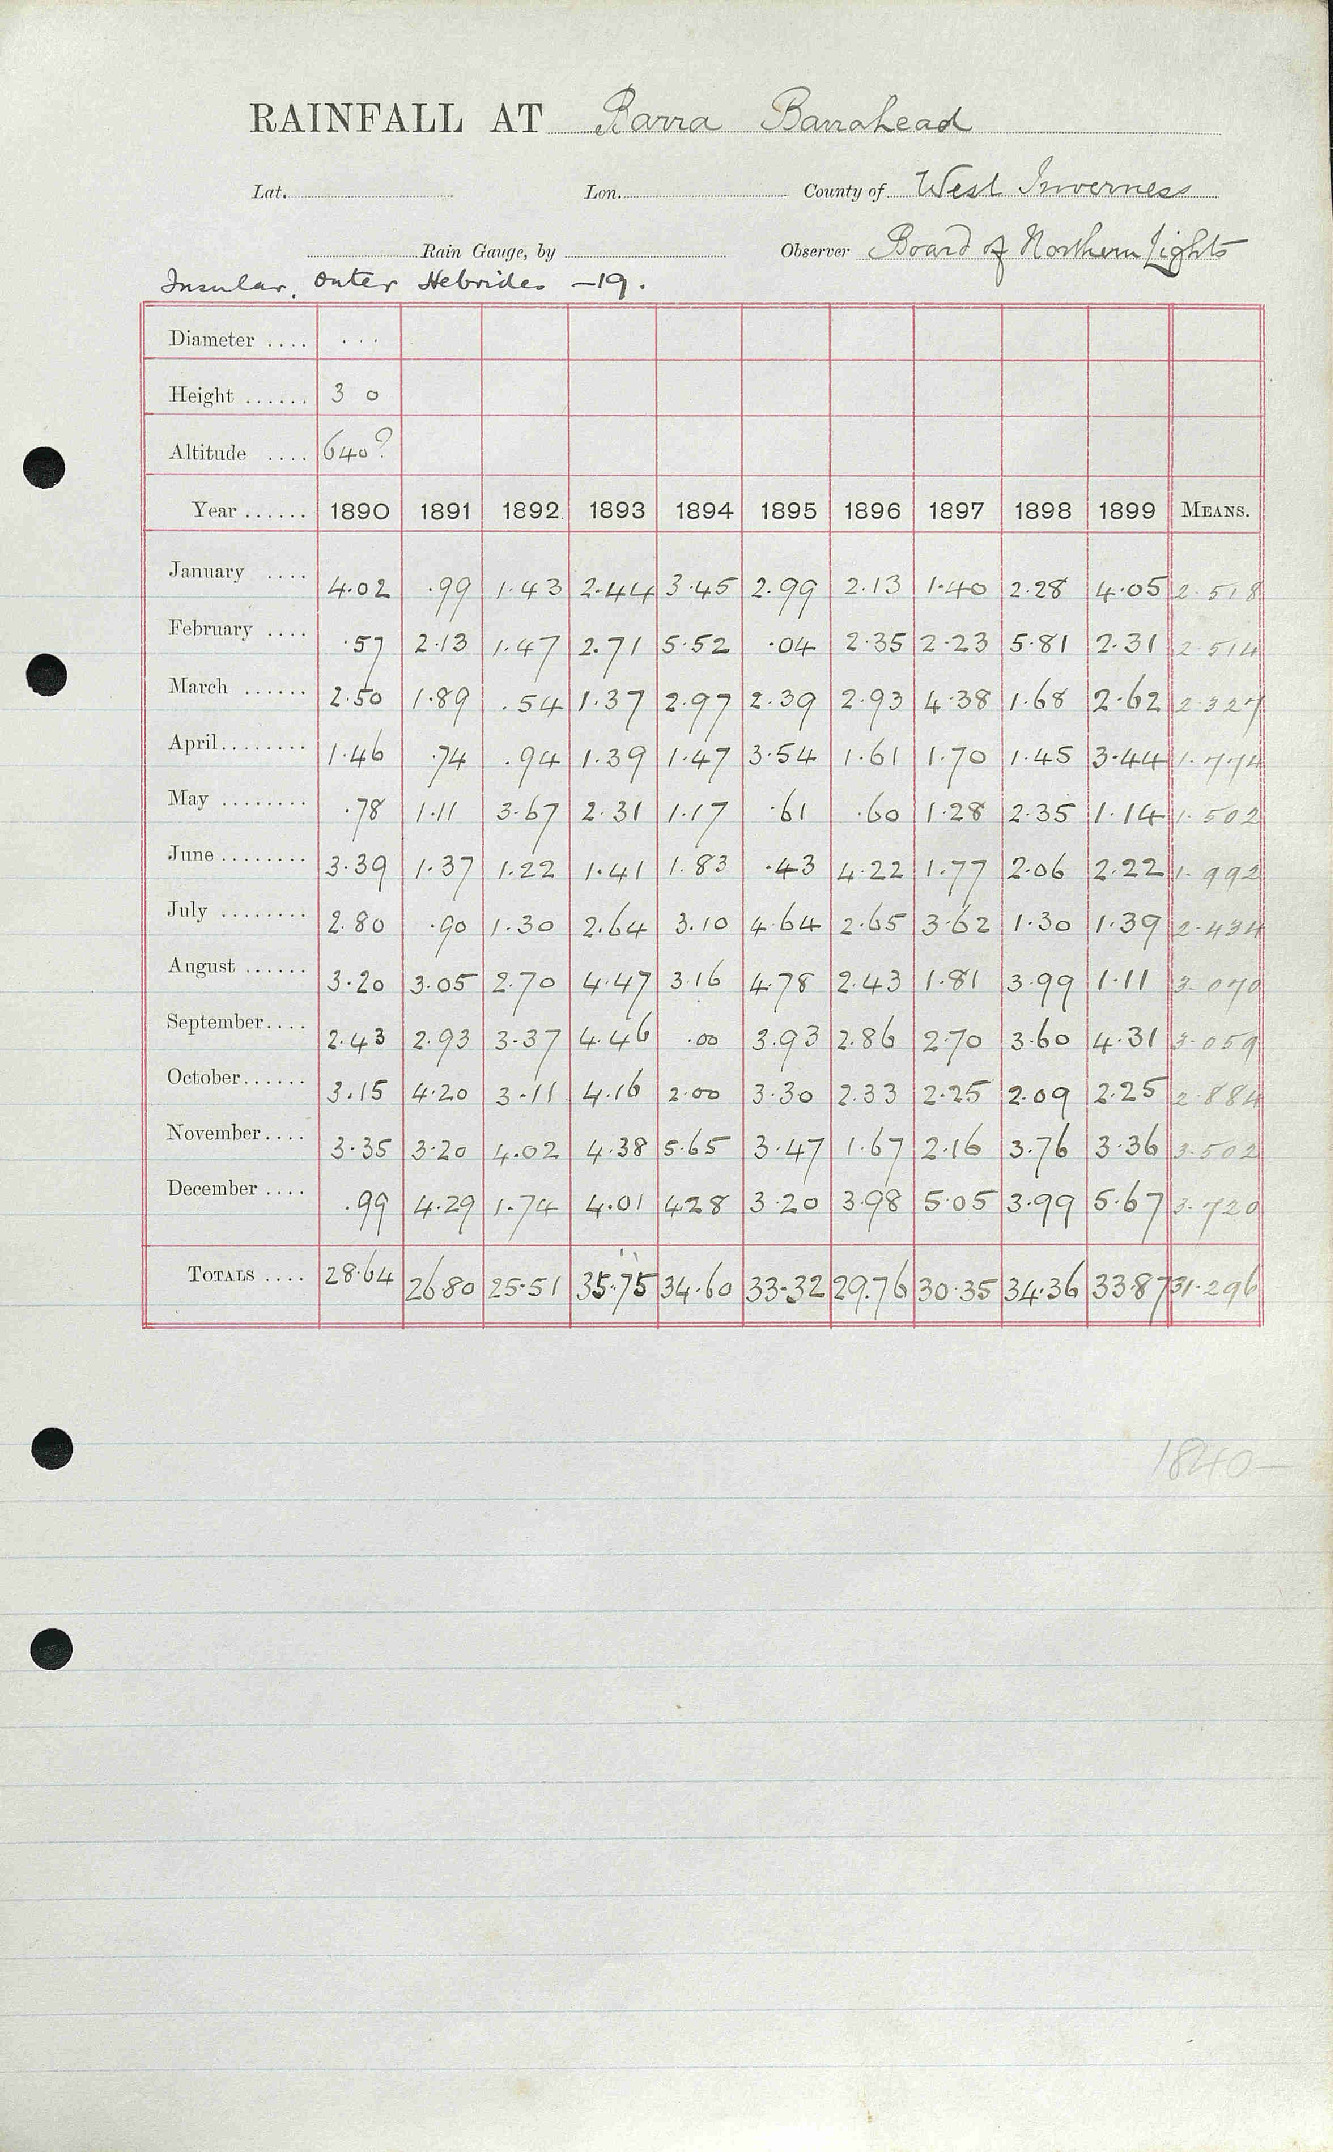 RAINFALL AT Barra Barrahead
Lat. Lon. County of West Inverness
Rain Gauge, by Observer Board of Northern Lights
Insular, Outer Hebrides —19.
Diameter .... ...
Height ...... 3 0
Altitude .... 640?
Year ...... 1890 1891 1892 1893 1894 1895 1896 1897 1898 1899 MEANS.
January .... 4.02 .99 1.43 2.44 3.45 2.99 2.13 1.40 2.28 4.05 2.518
February .... .57 2.13 1.47 2.71 5.52 .04 2.35 2.23 5.81 2.31 2.514
March ...... 2.50 1.89 .54 1.37 2.97 2.39 2.93 4.38 1.68 2.62 2.327
April........ 1.46 .74 .94 1.39 1.47 3.54 1.61 1.70 1.45 3.44 1.774
May ........ .78 1.11 3.67 2.31 1.17 .61 .60 1.28 2.35 1.14 1.502
June ........ 3.39 1.37 1.22 1.41 1.83 .43 4.22 1.77 2.06 2.22 1.992
July ........ 2.80 .90 1.30 2.64 3.10 4.64 2.65 3.62 1.30 1.39 2.434
August ...... 3.20 3.05 2.70 4.47 3.16 4.78 2.43 1.81 3.99 1.11 3.070
September.... 2.43 2.93 3.37 4.46 .00 3.93 2.86 2.70 3.60 4.31 3.059
October...... 3.15 4.20 3.11 4.16 2.00 3.30 2.33 2.25 2.09 2.25 2.884
November.... 3.35 3.20 4.02 4.38 5.65 3.47 1.67 2.16 3.76 3.36 3.502
December .... .99 4.29 1.74 4.01 4.28 3.20 3.98 5.05 3.99 5.67 3.720
TOTALS .... 28.64 26.80 25.51 35.75 34.60 33.32 29.76 30.35 34.36 33.87 31.296
1840—